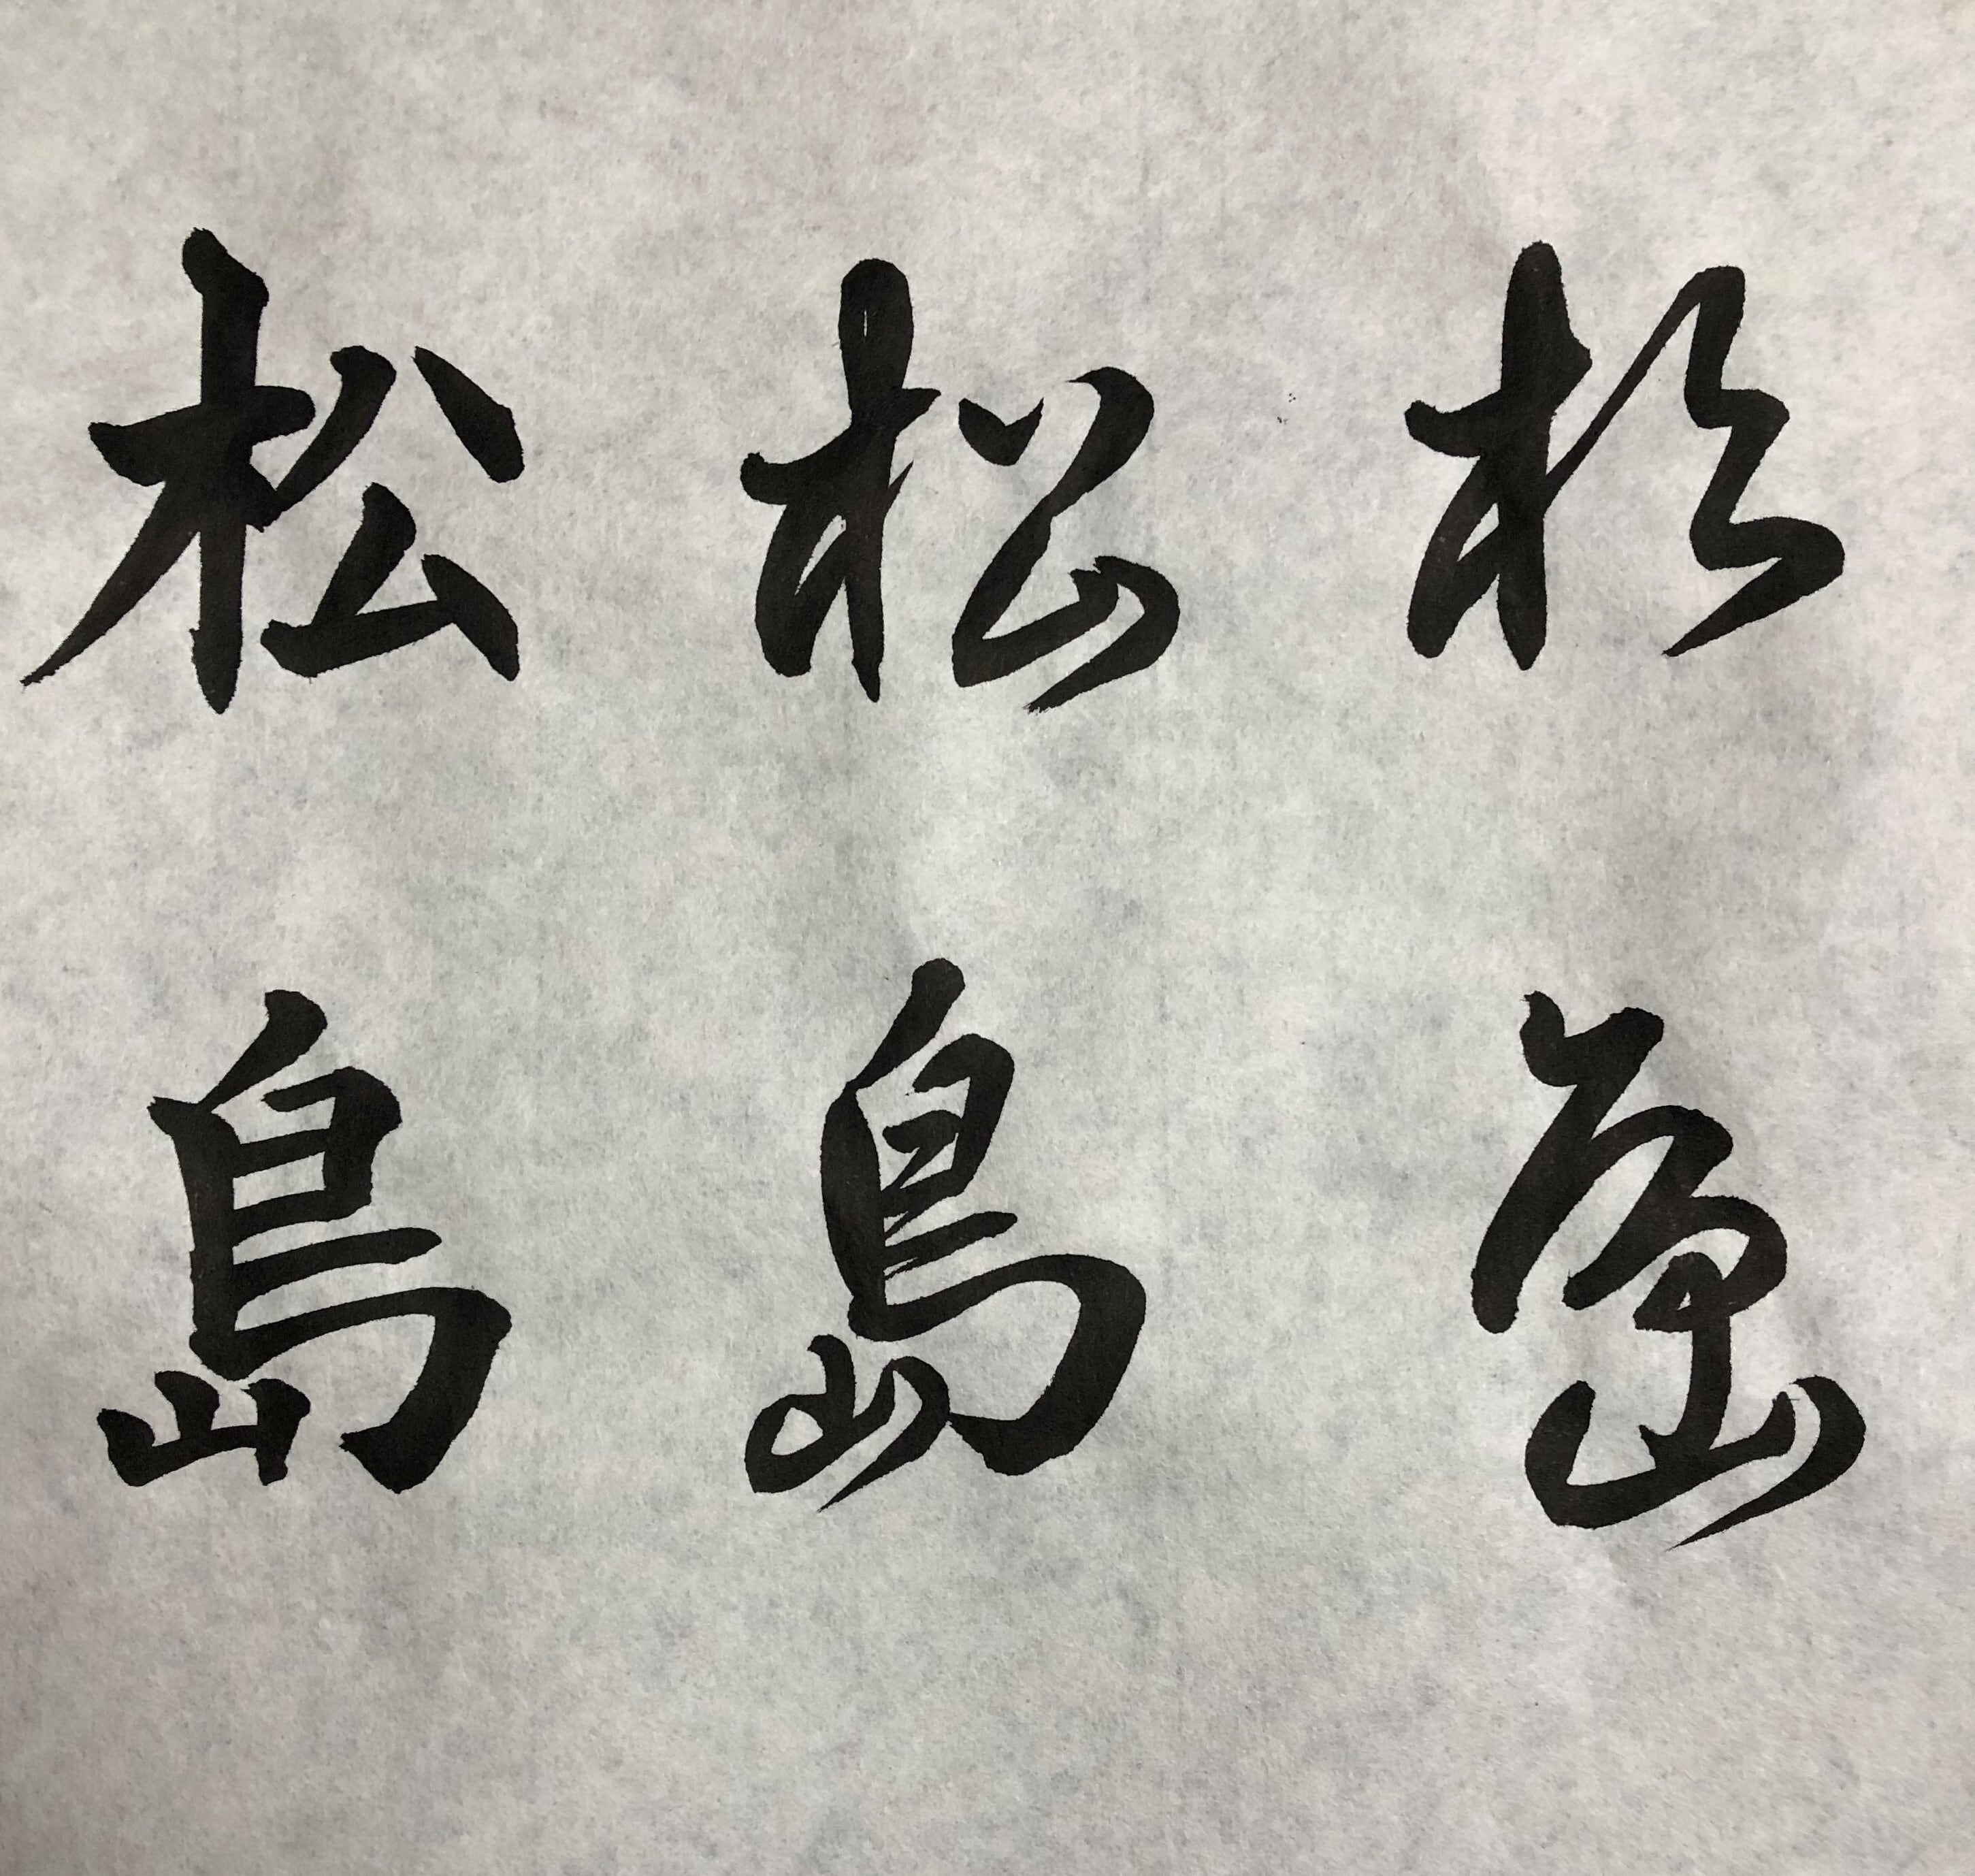 松島
松島
松島